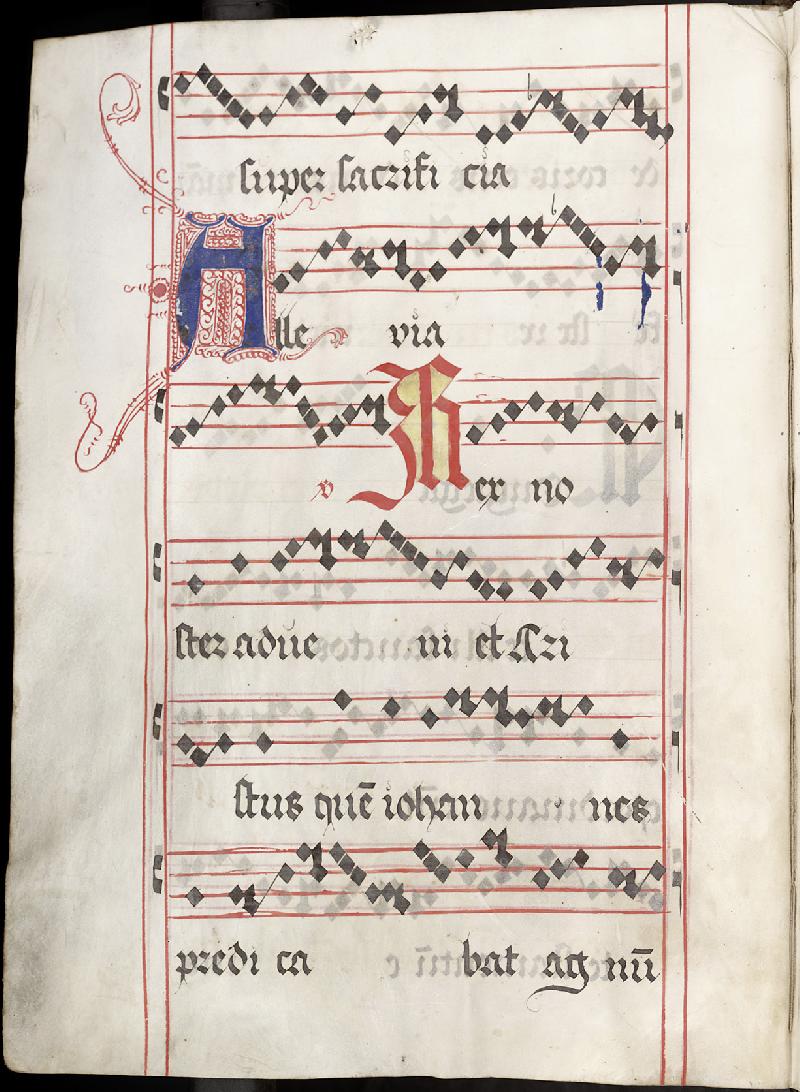 super sacrifi cia
Alle via
v Rex no
ster adue ni et Cri
stus quē iohan nes
predi ca bat ag nū